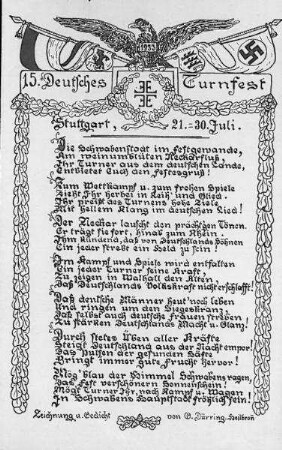 1933
15. Deutsches Turnfest
Stuttgart, 21.-30. Juli.
Die Schwabenstadt im Festgewande,
Am weinumblüten Neckarfluß,
Ihr Turner aus dem deutschen Lande,
Entbietet Euch den Festesgruß!
Zum Wettkampf u. zum frohen Spiele
Zieht Ihr herbei in Reih' und Glied.
Ihr preißt des Turnens hohe Ziele
Mit hellem Klang im deutschen Lied!
Der Neckar lauscht den prächtgen Tönen.
Er trägt sie fort, hinab zum Rhein.
Ihm kündend, daß von Deutschlands Söhnen
Ein jeder strebt ein Held zu sein!
Im Kampf und Spiele wird entfalten
Ein jeder Turner seine Kraft,
Zu zeigen in Walhall den Alten,
Daß Deutschlands Volkskraft nicht erschlafft!
Daß deutsche Männer heut' noch leben
Und ringen um den Siegeskranz;
Daß selbst auch deutsche Frauen streben
Zu stärken Deutschlands Macht u. Glanz!
Durch stetes Üben aller Kräfte
Steigt Deutschland aus der Nacht empor.
Das Pulsen der gesunden Säfte
Bringt immer gute Frucht hervor!
Mög' blau der Himmel Schwabens ragen,
Das Fest verschönern Sonnenschein!
Mögt Turner Ihr, nach Kampf u. Wagen
In Schwabens Hauptstadt fröhlich sein!
Zeichnung u. Gedicht von G. Dürring, Heilbronn